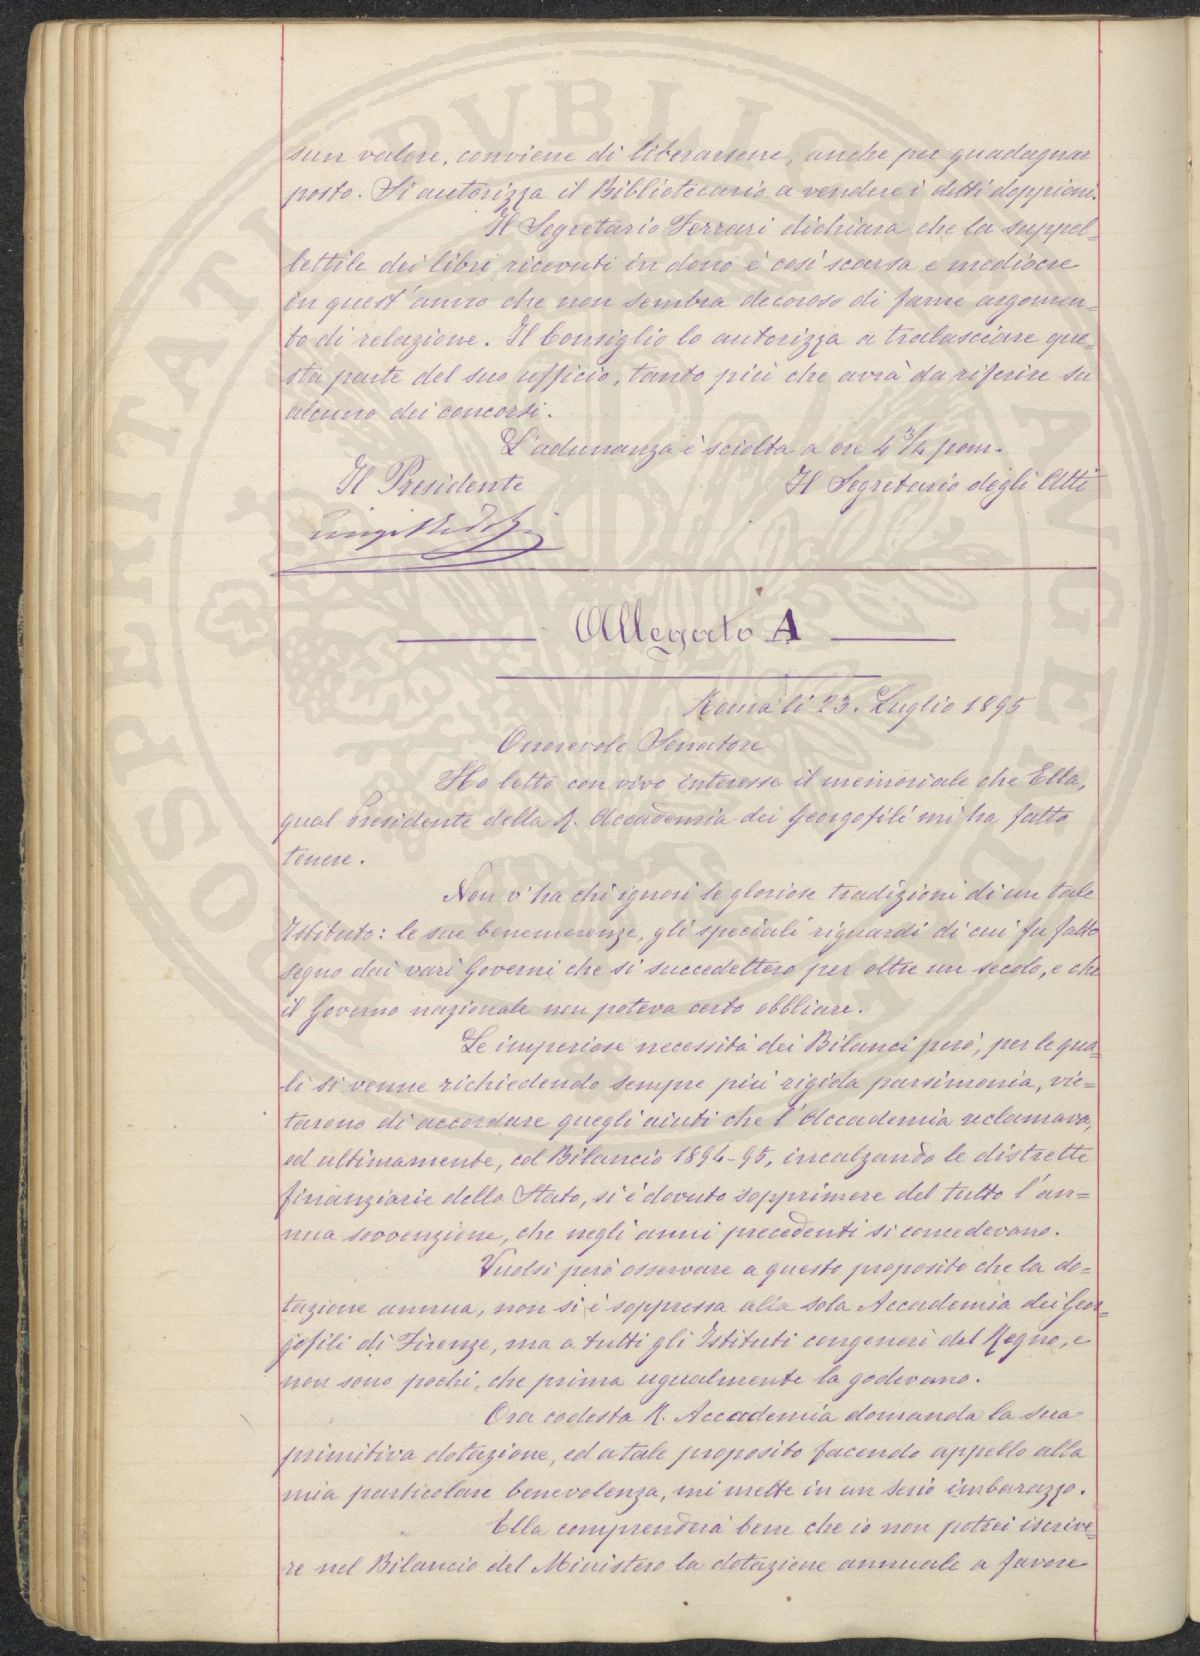 sun valore, conviene di liberarsene, anche per guadagnar
posto. Si autorizza il Bibliotecario a vendere i detti doppioni.
Il Segretario Ferrari dichiara che la suppel=
lettile dei libri ricevuti in dono è così scarsa e mediocre
in quest'anno che non sembra decoroso di farne argomen=
to di relazione. Il Consiglio lo autorizza a tralasciare que=
sta parte del suo ufficio, tanto più che avrà da riferire su
alcuno dei concorsi.
L'adunanza è sciolta a ore 4 3/4 pom.
Il Presidente Il Segretario degli Atti
Luigi Ridolfi
Allegato A
Roma li 23. Luglio 1895
Onorevole Senatore
Ho letto con vivo interesse il memoriale che Ella,
qual Presidente della R. Accademia dei Georgofili mi ha fatto
tenere.
Non v'ha chi ignori le gloriose tradizioni di un tale
Istituto: le sue benemerenze, gli speciali riguardi di cui fu fatto
segno dai vari Governi che si succedettero per oltre un secolo, e che
il Governo nazionale non poteva certo obbliare.
Le imperiose necessità dei Bilanci però, per le qua=
li si venne richiedendo sempre più rigida parsimonia, vie=
tarono di accordare quegli aiuti che l'Accademia reclamava,
ed ultimamente, col Bilancio 1894-95, incalzando le distrette
finanziarie dello Stato, si è dovuto sopprimere del tutto l'an=
nua sovvenzione, che negli anni precedenti si concedevano.
Vuolsi però osservare a questo proposito che la do=
tazione annua, non si è soppressa alla sola Accademia dei Geor=
gofili di Firenze, ma a tutti gli Istituti congeneri del Regno, e
non sono pochi, che prima ugualmente la godevano.
Ora codesta R. Accademia domanda la sua
primitiva dotazione, ed a tale proposito facendo appello alla
mia particolare benevolenza, mi mette in un serio imbarazzo.
Ella comprenderà bene che io non potrei iscrive=
re nel Bilancio del Ministero la dotazione annuale a favore
PROSPERITATI PVBLICAE AVGENDAE